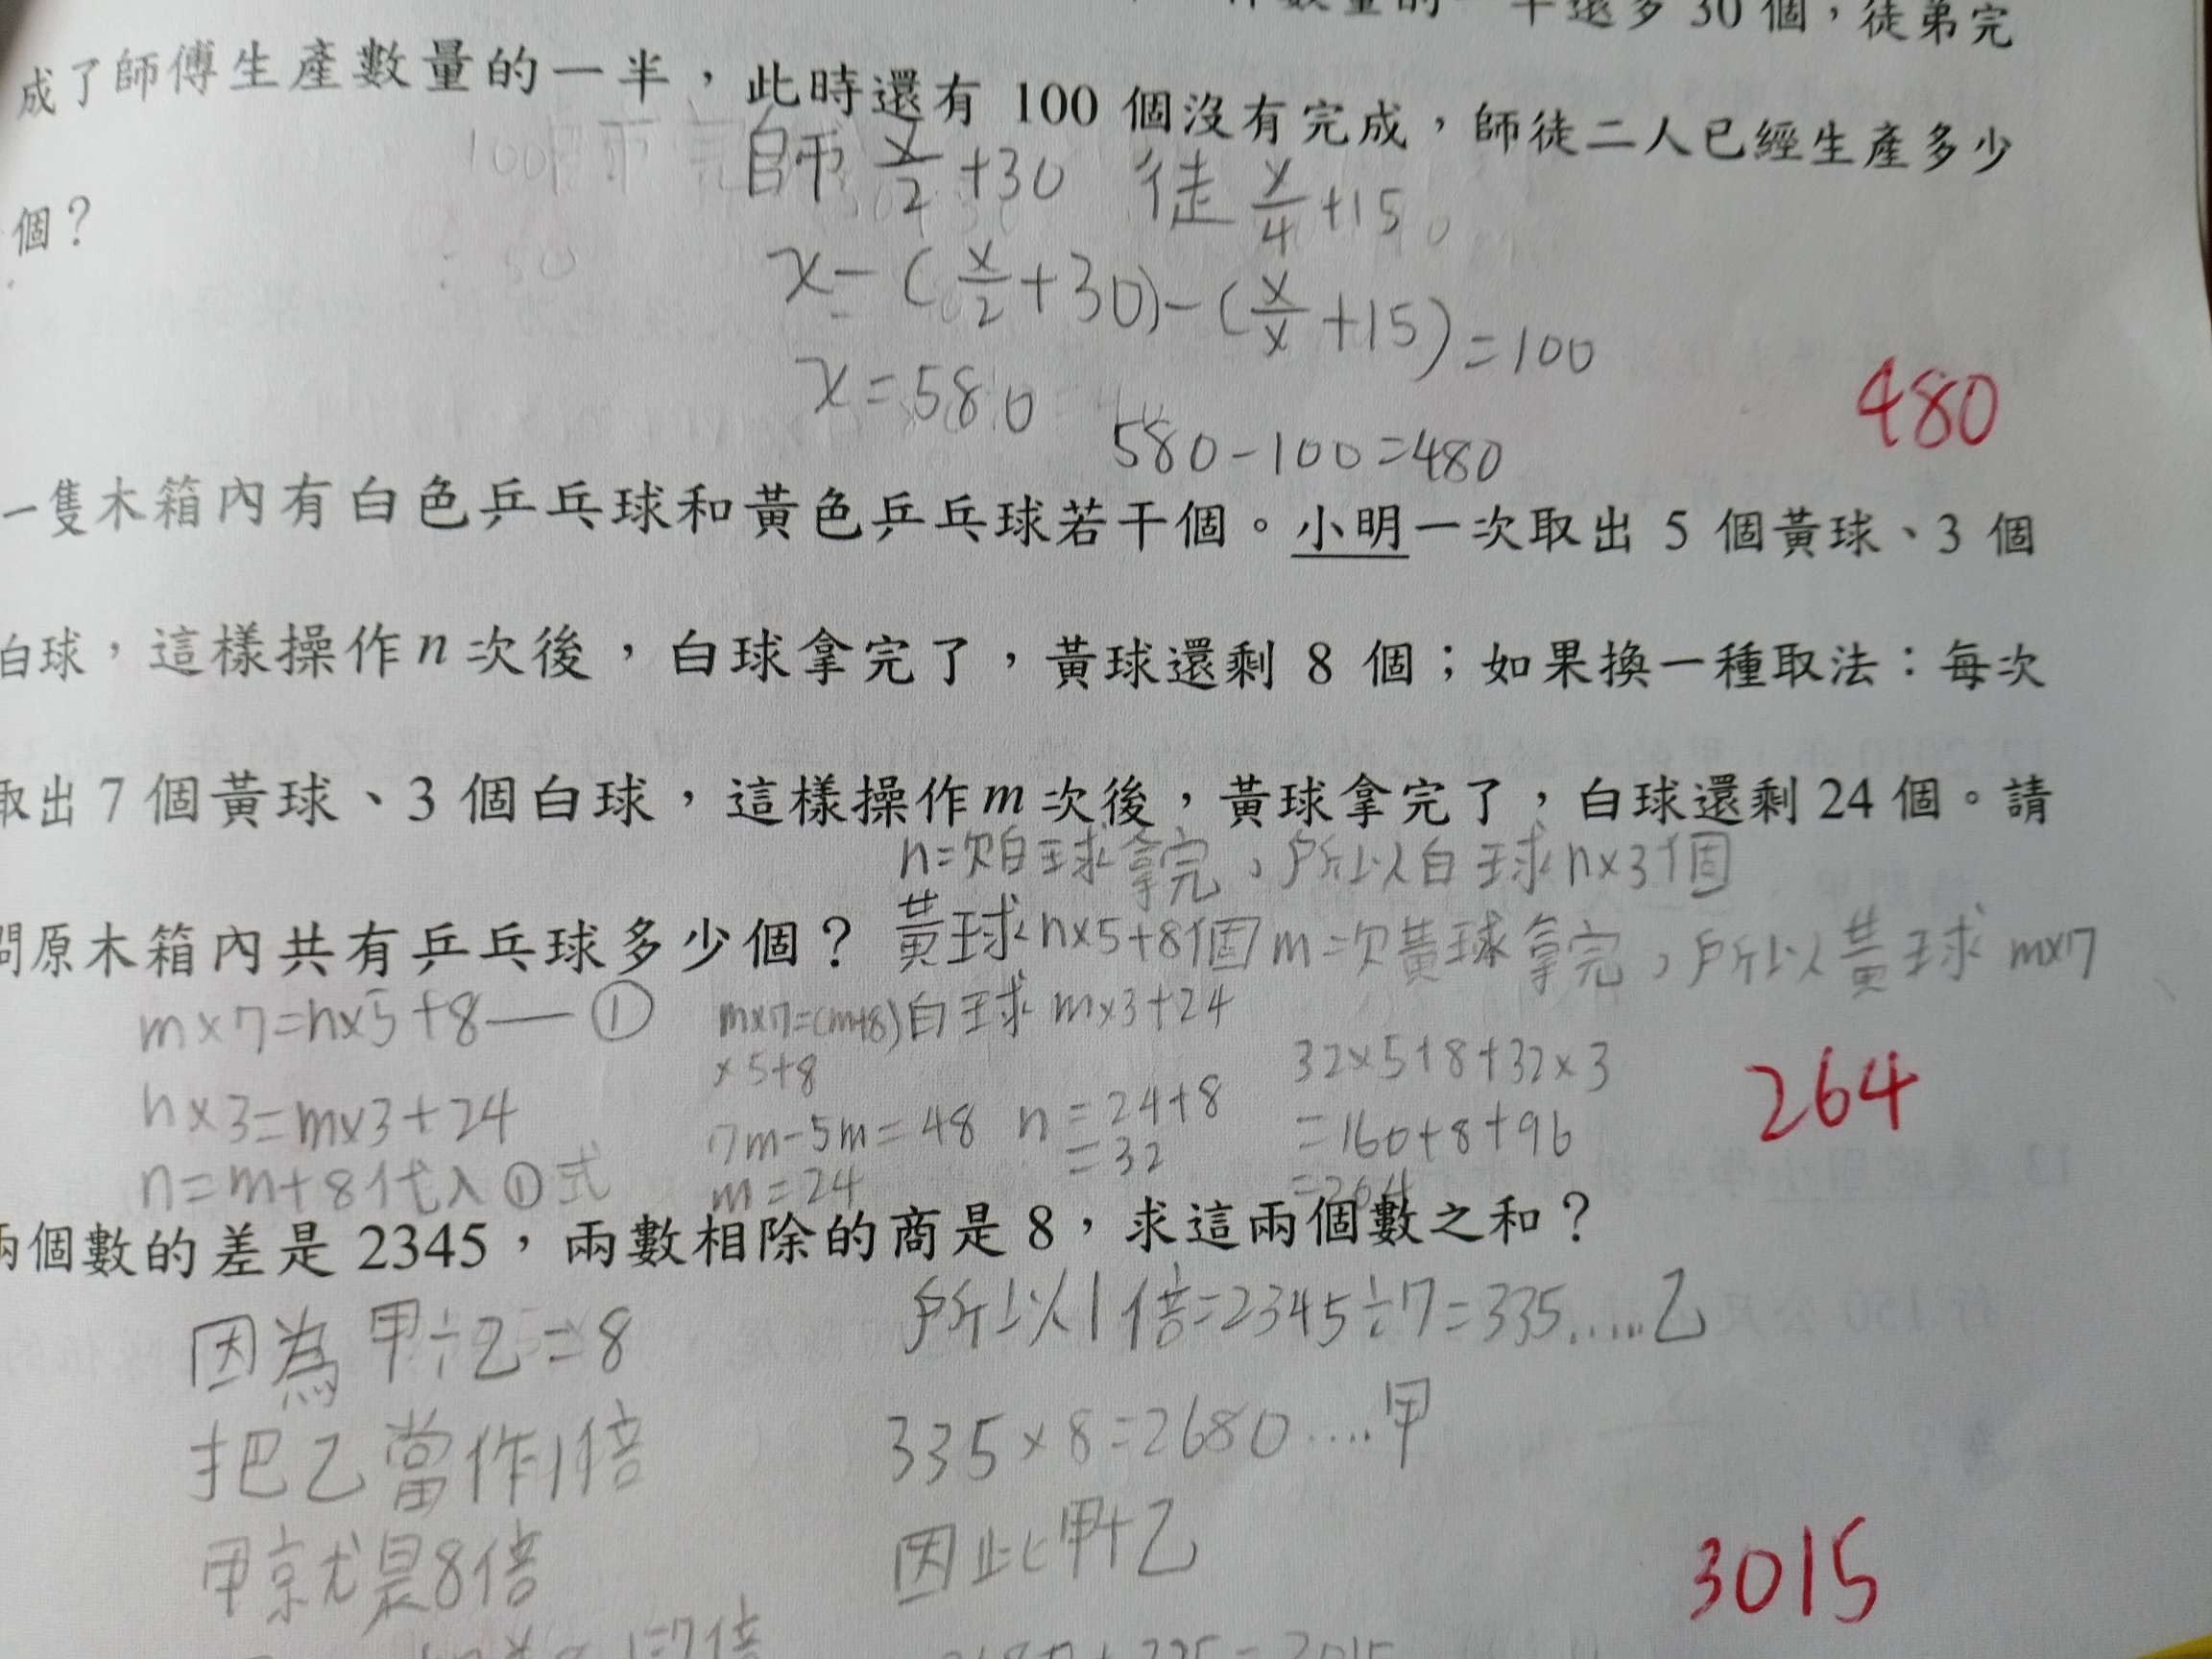 數量的一半還多 30 個，徒弟完
成了師傅生產數量的一半，此時還有 100 個沒有完成，師徒二人已經生產多少
個？
師 x/2 +30 徒 x/4 +15
x－(x/2+30)－(x/x+15)=100
x=580
580－100=480
480
一隻木箱內有白色乒乓球和黃色乒乓球若干個。小明一次取出 5 個黃球、3 個
白球，這樣操作 n 次後，白球拿完了，黃球還剩 8 個；如果換一種取法：每次
取出 7 個黃球、3 個白球，這樣操作 m 次後，黃球拿完了，白球還剩 24 個。請
n=次白球拿完，所以白球n×3個
問原木箱內共有乒乓球多少個？
黃球n×5+8個 m=次黃球拿完，所以黃球 m×7
白球 m×3+24
m×7=n×5+8 — ①
n×3=m×3+24
n=m+8代入①式
m×7=(m+8)
×5+8
7m－5m=48
m=24
n=24+8
=32
32×5+8+32×3
=160+8+96
=264
264
兩個數的差是 2345，兩數相除的商是 8，求這兩個數之和？
因為甲÷乙=8
把乙當作1倍
甲就是8倍
所以1倍=2345÷7=335.....乙
335×8=2680....甲
因此甲+乙
3015